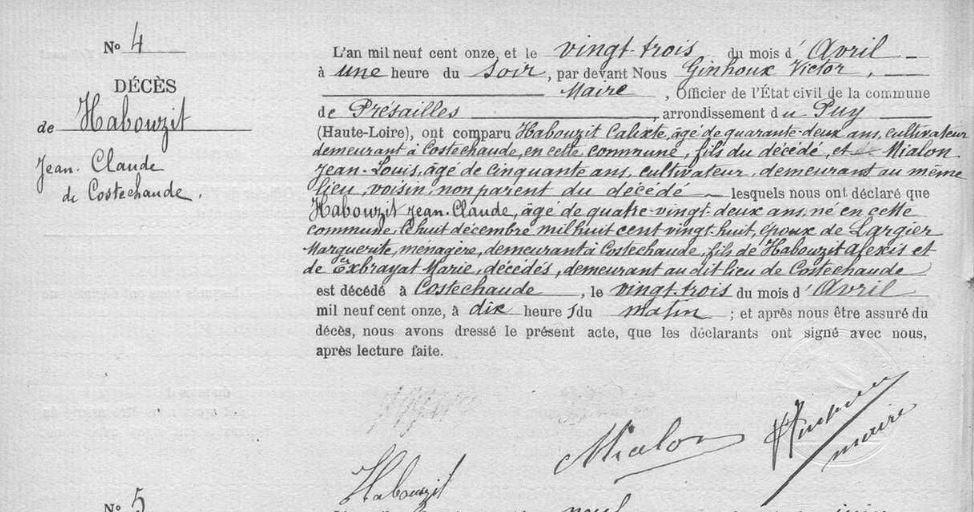 No 4
DÉCÈS
de Habouzit
Jean-Claude
de Costechaude.
L'an mil neuf cent onze, et le vingt-trois du mois d'Avril
à une heure du soir, par devant Nous Ginhoux Victor,
Maire, Officier de l'État civil de la commune
de Présailles, arrondissement du Puy
(Haute-Loire), ont comparu Habouzit Calixte, âgé de quarante-deux ans, cultivateur
demeurant à Costechaude, en cette commune, fils du décédé, et Mialon
Jean-Louis, âgé de cinquante ans, cultivateur, demeurant au même
lieu, voisin, non parent du décédé lesquels nous ont déclaré que
Habouzit Jean-Claude, âgé de quatre-vingt-deux ans, né en cette
commune, le huit décembre mil huit cent vingt-huit, époux de Largier
Marguerite, ménagère, demeurant à Costechaude, fils de Habouzit Alexis et
de Exbrayat Marie, décédés, demeurant au dit lieu de Costechaude
est décédé à Costechaude, le vingt-trois du mois d'Avril
mil neuf cent onze, à dix heures du matin; et après nous être assuré du
décès, nous avons dressé le présent acte, que les déclarants ont signé avec nous,
après lecture faite.
Habouzit
Mialon
Ginhoux
maire
No 5